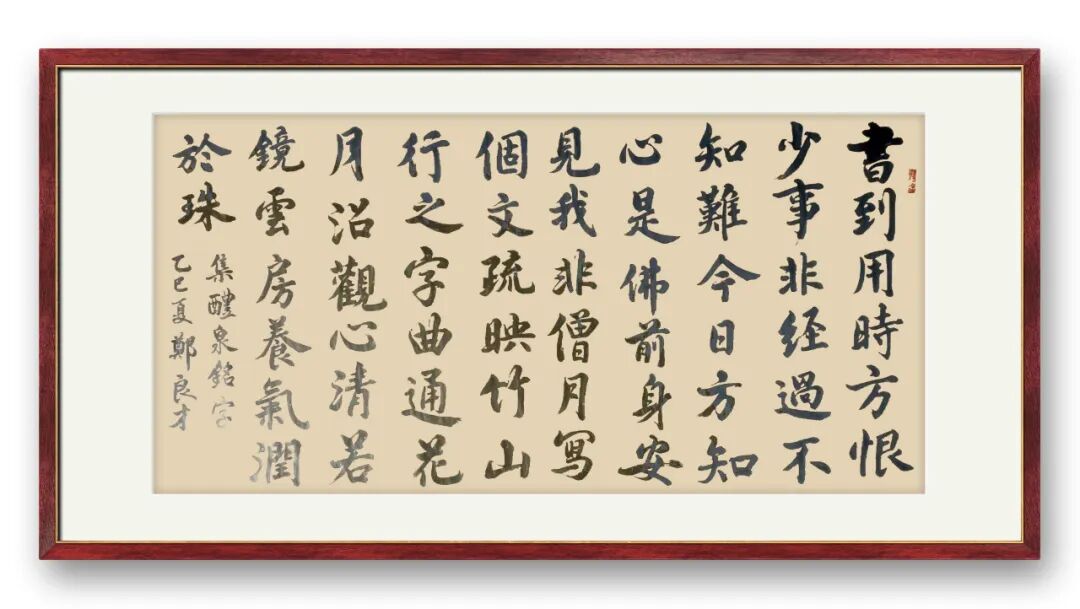 書到用時方恨
少事非经過不
知難今日方知
心是佛前身安
見我非僧月寫
個文疏映竹山
行之字曲通花
月沼觀心清若
鏡雲房養氣潤
於珠
集醴泉銘字
乙巳夏鄭良才